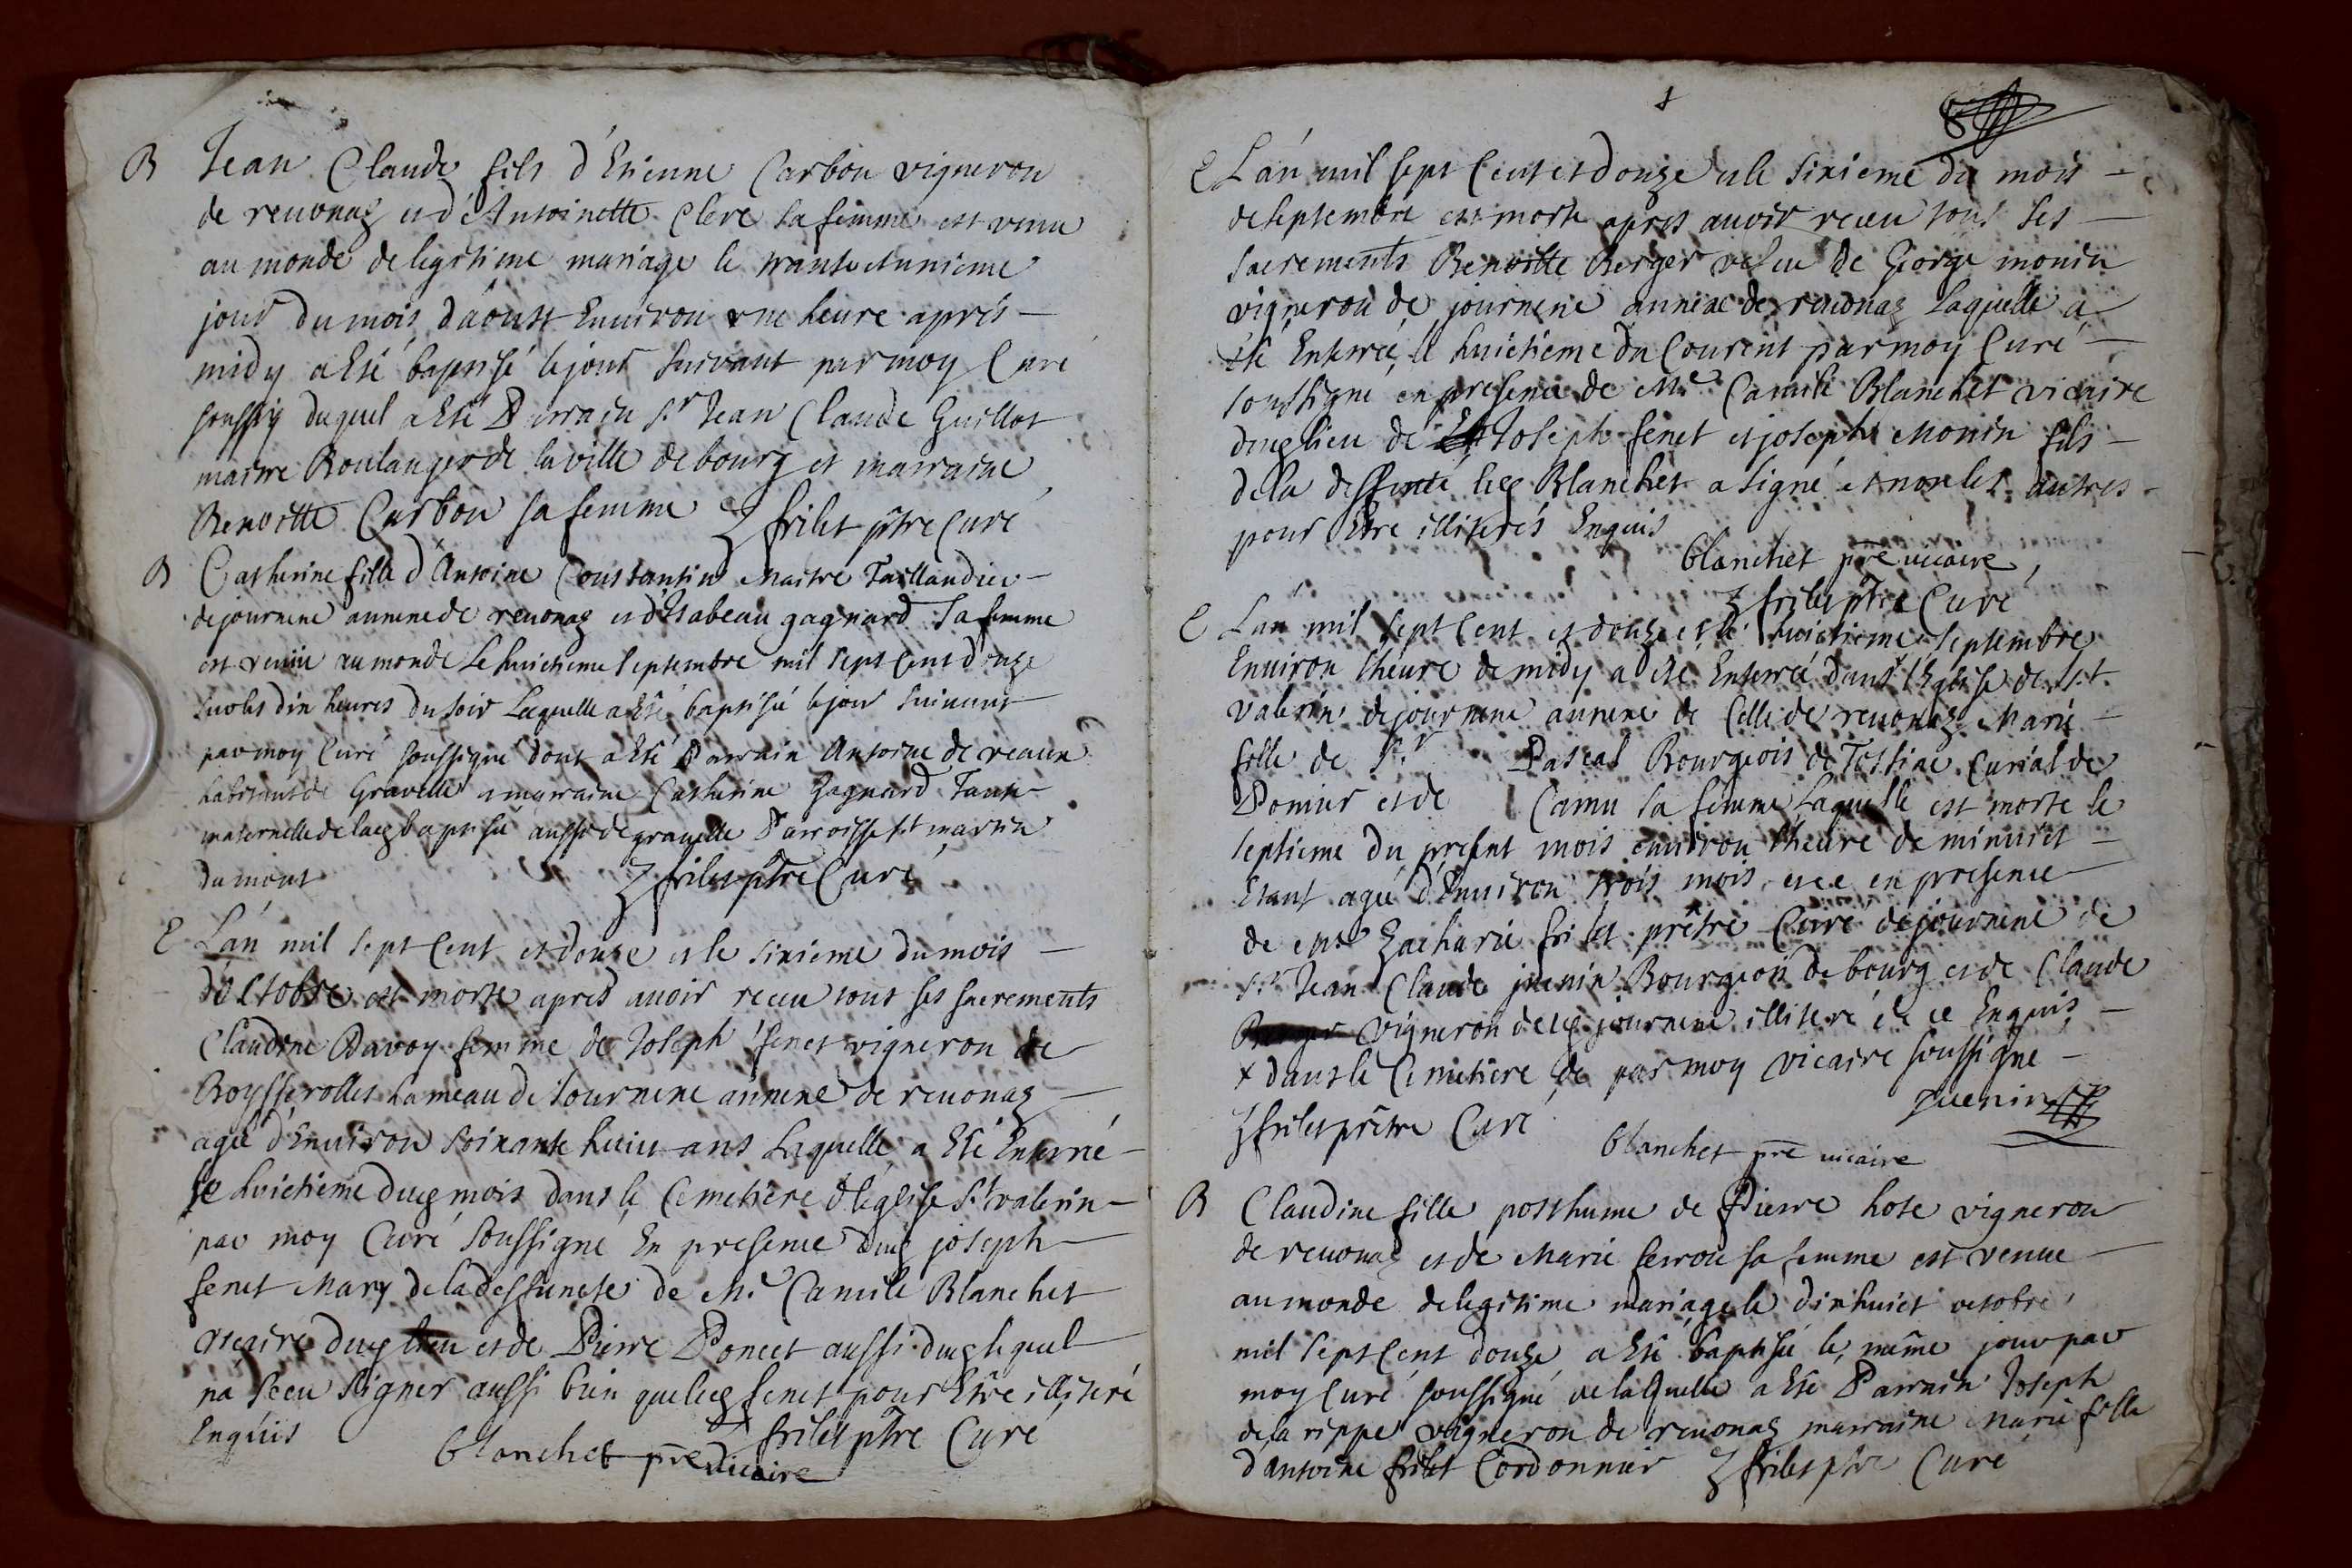 B Jean Claude fils d'Etienne Carbon vigneron
de reuonas et d'Antoinette Clere sa femme est venu
au monde de legitime mariage le trante et unieme
jour du mois d'aoust Enuiron vne heure apres
midy a Esté baptisé le jour suivant par moy Curé
soussig duquel a Esté Parrain sr Jean Claude Guillot
maitre Boulanger de la ville de bourg et marraine
Benoitte Carbon sa femme Z frilet ptre Curé
B Catherine fille d'Antoine Constantin Maitre Taillandier
de journene annexe de reuonas et d'Isabeau gagnard sa femme
est venüe au monde Le huictieme septembre mil sept cent douze
sur les dix heures du soir Laquelle a Esté baptisée le jour suiuant
par moy Curé soussigné dont a Esté Parrain Antoine de reaux
habitant de Grauelle a marraine Catherine Gagnard Tante
maternelle de lacq baptisée aussi de grauelle Parroisse st martin
du mont Z frilet ptre Curé
E L'an mil sept Cent et douze et le sixieme du mois
d'octobre est morte apres auoir receu tous ses sacrements
Claudine Davoy femme de Joseph fenet vigneron de
Boysserolles hameau de Journene annexe de reuonas
agée d'Enuiron soixante huict ans Laquelle a Esté Enterrée
le huictieme ducq mois dans le Cemetiere de l'eglise st valerin
par moy Curé soussigné En presence ducq joseph
fenet Mary de la deffuncte de Mre Camile Blanchet
vicaire ducq lieu et de Pierre Poncet aussi ducq lequel
na sceu signer aussi bien que lecq fenet pour Estre illiteré
Enquis Z frilet ptre Curé
blanchet pre vicaire
E L'an mil sept Cent et douze et le sixieme du mois
de septembre est morte apres auoir receu tous ses
sacrements Benoitte Berger vefue de George monin
vigneron de journene annexe de reuonas Laquelle a
été Enterrée le huictieme du Courent par moy Curé
soussigné en presence de Mre Camile Blanchet vicaire
ducq lieu de Joseph fenet et joseph Monin fils
de la deffuncte lecq Blanchet a signé et non les autres
pour Etre illiterés Enquis
blanchet pre vicaire
Z frilet ptre Curé
E L'an mil sept Cent et douze et le huictieme septembre
Enuiron l'heure de midy a été Enterrée dans l'Eglise de st
valerin de journene annexe de Celle de reuonas Marie
fille de Sr Pascal Bourgeois de Tossiac Curial de
Poncin et de Camu sa femme Laquelle est morte le
septieme du present mois enuiron l'heure de minuict
Etant agée d'Enuiron trois mois et ce en presence
de mre Zacharie frilet prêtre Curé de journene de
sr Jean Claude juenin Bourgeois de bourg et de Claude
Berger vigneron decq journene illiteré de ce Enquis
x dans le Cimetiere de par moy vicaire soussigné
Juenin
Z frilet prêtre Curé
blanchet pre vicaire
B Claudine fille posthume de Pierre hote vigneron
de reuonas et de Marie ferrou sa femme est venue
au monde de legitime mariage le dixhuict octobre
mil sept Cent douze a Esté baptisée le même jour par
moy Curé soussigné de laquelle a Esté Parrain Joseph
de la rippe vigneron de reuonas marraine Marie fille
d'antoine frilet Cordonnier Z frilet ptre Curé